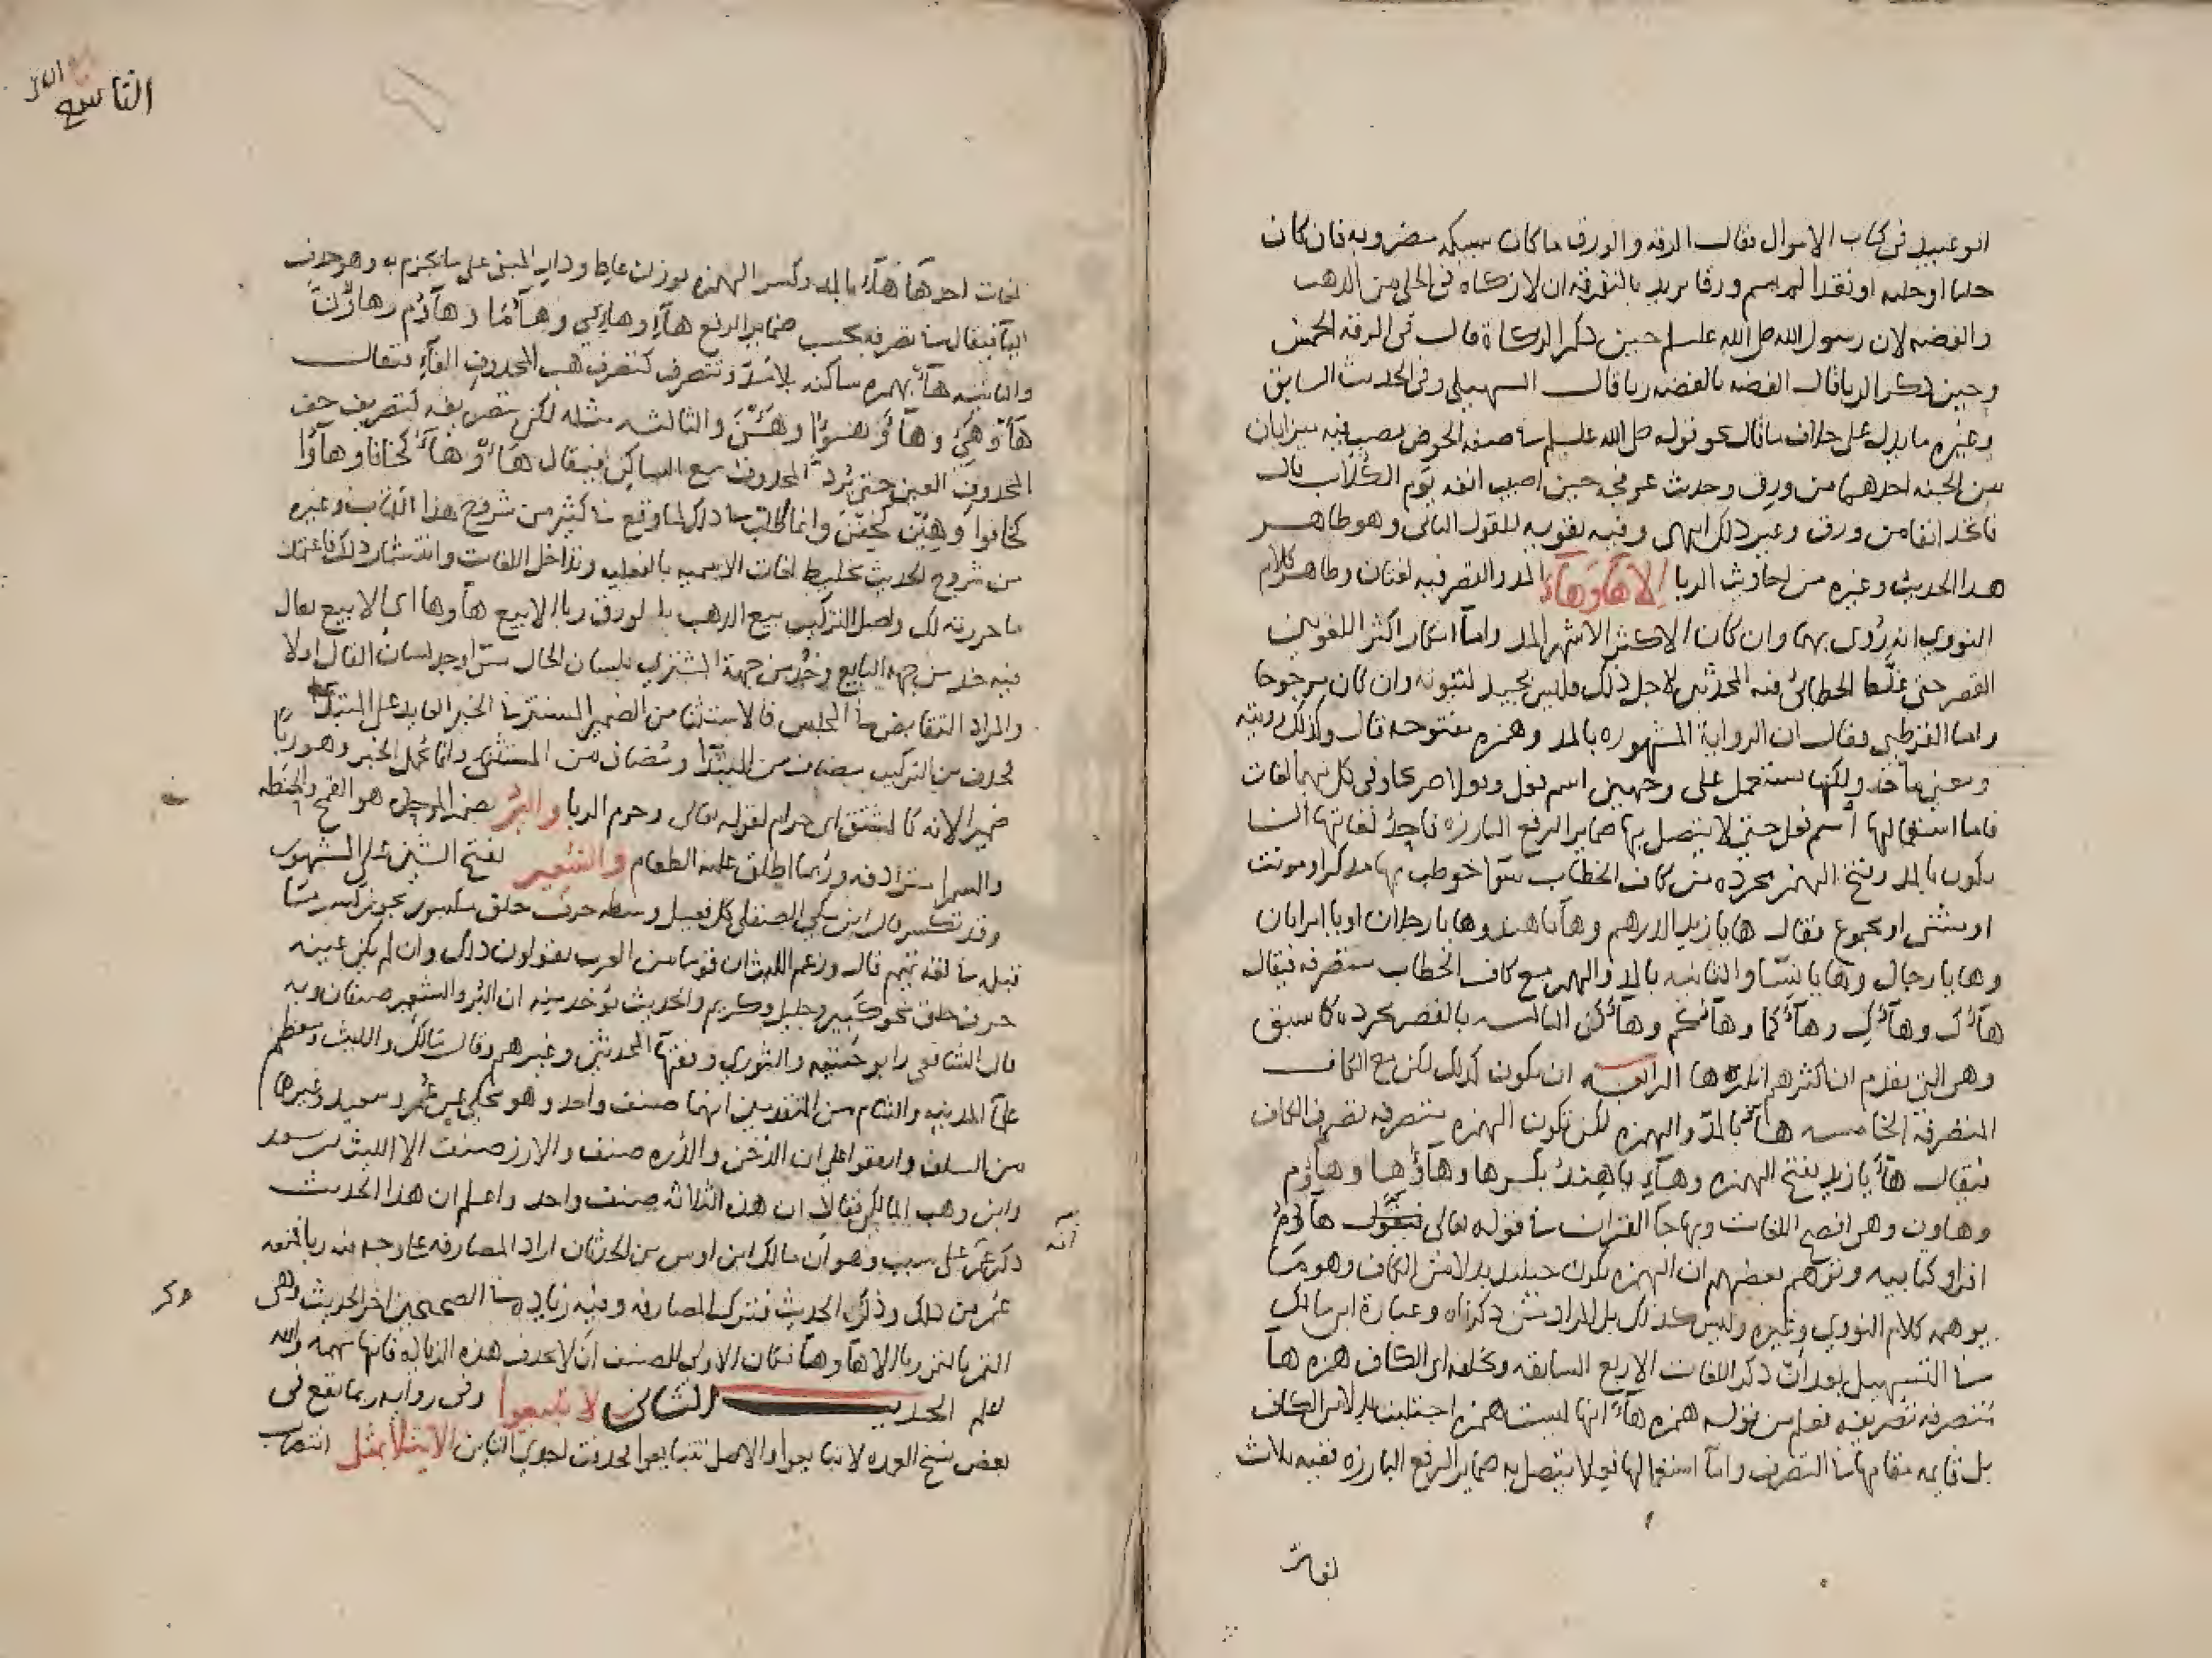 ابو عبيد في كتاب الاموال فقال الرقه والورق ما كان سبيكه مضروبه فان كان
حليا او حليه او نقدا لم يسم ورقا يريد بالتفرقه ان لا زكاه في الحلي من الذهب
والفضه لان رسول الله صلى الله عليه وسلم حين ذكر الزكاة قال في الرقه الخمس
وحين ذكر الربا قال الفضه بالفضه ربا قال السهيلي وفي الحديث السابق
وغيره ما يدل على خلاف ما قال نحو قوله صلى الله عليه وسلم في صفه الحوض يصب فيه ميزابان
من الجنه احدهما من ورق وحديث عرفجه حين اصيب انفه يوم الكلاب قال
فاتخذ انفا من ورق وغير ذلك انتهى وفيه تقويه للقول الثاني وهو ظاهر
هذا الحديث وغيره من احاديث الربا الا هآ وهآء المد والقصر فيه لغتان وظاهر كلام
النووي انه روى بهما وان كان الاكثر الاشهر المد واما انكار اكثر اللغويين
القصر حتى غلط الخطابي فيه المحدثين لاجل ذلك فليس بجيد لثبوته وان كان مرجوحا
واما القرطبي فقال ان الرواية المشهوره بالمد وهمزه مفتوحه قال وكذلك رويته
ومعنى ها خذ ولكنها تستعمل على وجهين اسم فعل وفعلا صرحا وفي كل منهما لغات
فاما استعمالها اسم فعل حتى لا يتصل بها ضماير الرفع البارزه فاحد لغاتها ان
يكون بالمد وفتح الهمز مجرده من كاف الخطاب سوا خوطب بها مذكر او مونث
او مثنى او مجموع فقال ها يا زيد الدرهم وهآ يا هند وها يا رجلان او يا امراتان
وها يا رجال وها يا نسا والثانيه بالمد والهمز مع كاف الخطاب متصرفه فيقال
هآءك وهآءك وهآءكما وهآءكم وهآءكن الثالثه بالقصر مجرده كما سبق
وهي التي تقدم ان اكثرهم انكرها الرابعه ان يكون كذلك لكن مع الكاف
المتصرفه الخامسه هآء بالمد والهمزه لكن تكون الهمزه متصرفه تصرف الكاف
فيقال هآء يا زيد بفتح الهمزه وهآء يا هند بكسرها وهآؤما وهآؤم
وهاون وهي افصح اللغات وبها جآ القران في قوله تعالى فيقول هآؤم
اقراو كتابيه وتوهم بعضهم ان الهمزه تكون حينئذ بدلا من الكاف وهو مما
يوهمه كلام النووي وغيره وليس كذلك بل المراد مثل ما ذكرناه وعبارة ابن مالك
في التسهيل بعد ان ذكر اللغات الاربع السابقه وتخلفه اي الكاف همزه هآ
متصرفه تصريفه فعلم من قوله همزه هآء انها ليست همزه اجتلبت بدلا من الكاف
بل قايمه مقامها في التصرف واما استعمالها فعلا يتصل به ضماير الرفع البارزه ففيه ثلاث
لغات
التاسع
لغات احدها هآء بالمد وكسر الهمزه بوزن عاط ورام المبني على ما يجزم به وهو حذف
اليآ فيقال في تصرفه بحسب ضماير الرفع هآء وهاءي وهآئيا وهآؤم وهاؤن
والثانيه هآء بهمزه ساكنه بلا مد وتتصرف كتصرف هب المحذوف الفآء فيقال
هأ وهئي وهآ وهئوا وهئن والثالثه مثله لكن تصريفه كتصريف خف
المحذوف العين حتى يرد المحذوف مع الساكن فيقال هاء وهآءا كخافا وهآوا
كخافوا وهئن كخفن وانما اطلت في ذلك لما وقع في كثير من شروح هذا الكتاب وغيره
من شروح الحديث تخليط لغات الاسميه بالفعليه وتداخل اللغات وانتشار ذلك فاعتمد
ما حررته لك واصل التركيب بيع الذهب بالورق ربا الا بيع هآ وها اي الا بيع يقال
فيه خذ من جهة البايع وخذ من جهة المشتري بلسان الحال سوا وجد لسان القال اولا
والمراد التقابض في المجلس فالاستثنا من الضمير المستتر في الخبر العايد على المبتدا
فحذف من التركيب مضاف من المبتدا ومضاف من المستثنى وانما تحمل الخبر وهو ربا
ضميرا لانه كالمشتق اي حرام لقوله تعالى وحرم الربا والبر بضم الموحده هو القمح والحنطه
والسمرا مترادفه وربما اطلق عليه الطعام والشعير بفتح الشين على المشهور
وقد تكسر قال ابن مكي الصقلي كل فعيل وسطه حرف حلق مكسور يجوز كسر ما
قبله في لغه تميم قال وزعم الليث ان قوما من العرب يقولون ذلك وان لم يكن عينه
حرف حلق نحو كبير وجليل وكريم والحديث يوخذ منه ان البر والشعير صنفان وبه
قال الشافعي وابو حنيفه والثوري وفقها المحدثين وغيرهم وقال مالك والليث ومعظم
علما المدينه والشام من المتقدمين انهما صنف واحد وهو محكي عن عمر وسعيد وغيرهما
من السلف واتفقوا على ان الدخن والذره صنف والارز صنف الا الليث بن سعد
وابن وهب المالكي فقالا ان هذه الثلاثه صنف واحد واعلم ان هذا الحديث
ذكر عمر على سبب وهو ان مالك ابن اوس بن الحدثان اراد المصارفه على وجه فيه ربا فمنعه
انه
عمر من ذلك وذكر الحديث فترك المصارفه وفيه زياده في الصحيحين اخر الحديث وهي
وكر
التمر بالتمر ربا الا هآ وهآ فكان الاولى للمصنف ان لا يحذف هذه الزياده فانها مهمه والله
اعلم الحديث الثاني لا تبيعوا وفي روايه ربما تقع في
بعض نسخ العمده لا تبايعوا والاصل تتبايعوا فحذفت احدى التاين الا مثلا بمثل انتصاب